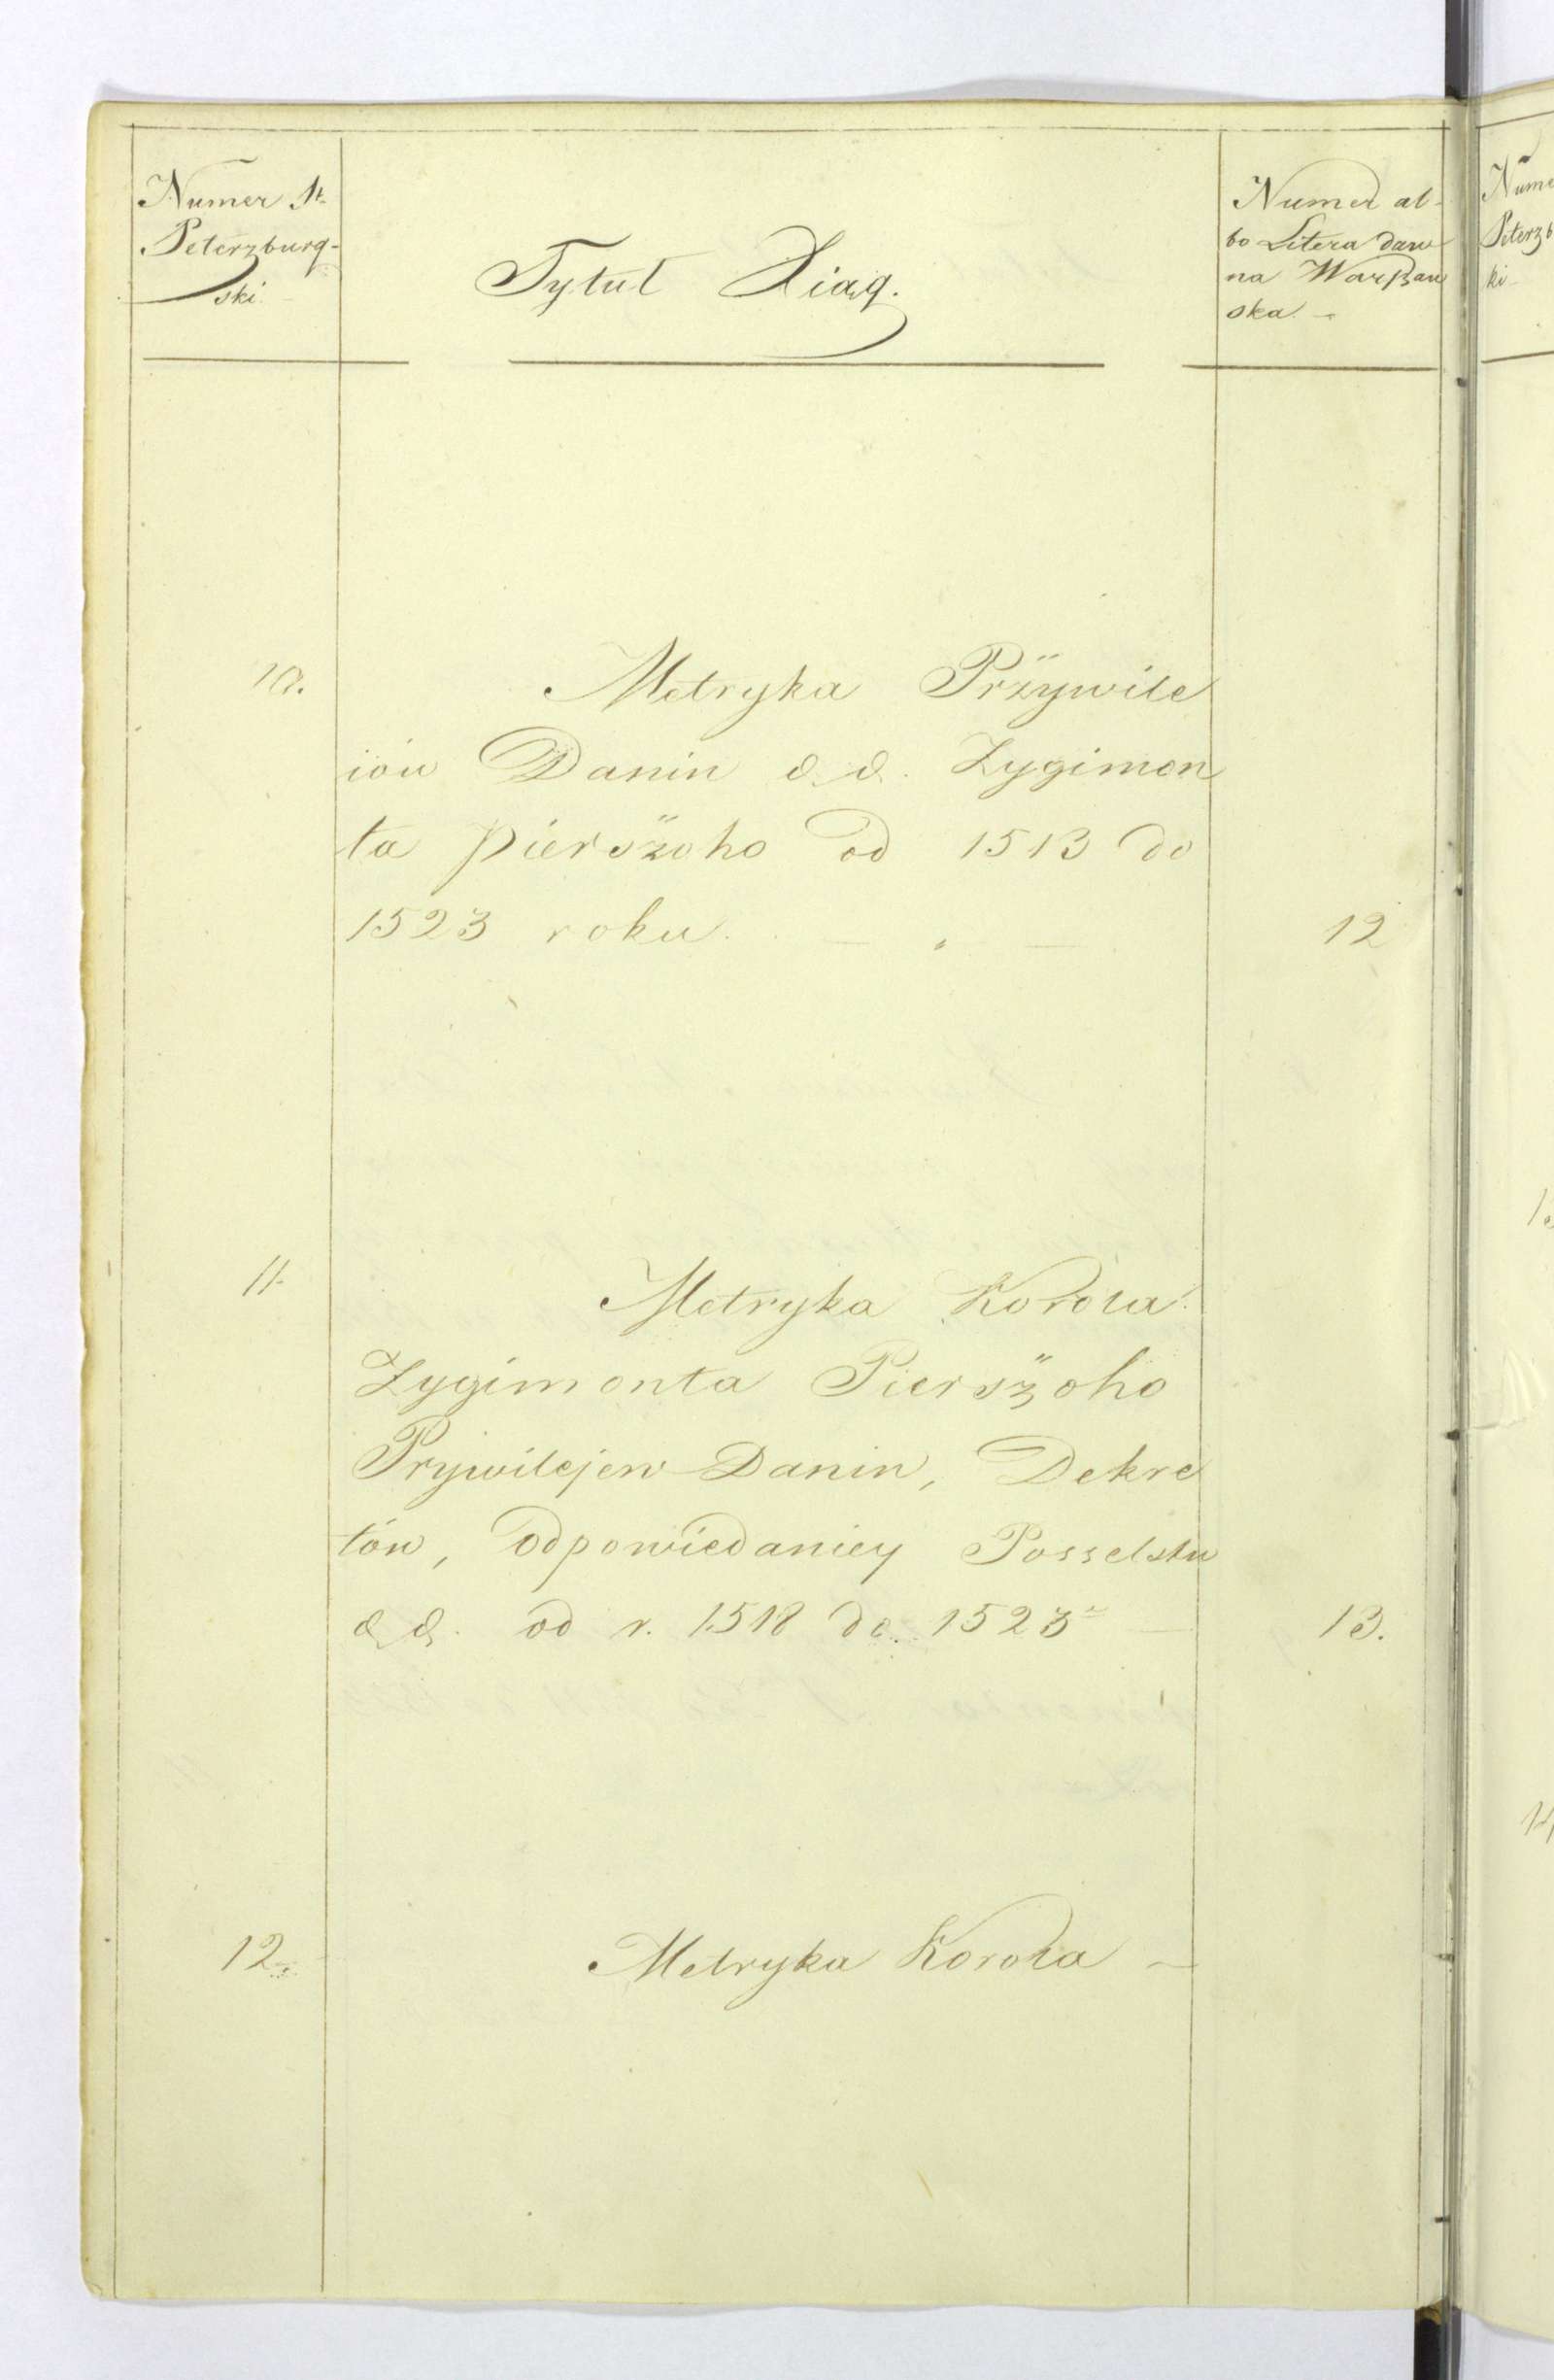 Numer St.
Peterzburg-
ski
Tytuł Xiąg.
Numer al-
bo Litera daw
na Warszaw
ska -
10.
Metryka Przywile
iów Danin &.&. Zygimon
ta Pierszoho od 1513 do
1523 roku. — „ —
12
11.
Metryka Korola
Zygimonta Pierszoho
Prywilejew Danin, Dekre
tów, Odpowiedaniey Posselstw
&.&. od r. 1518 do 1523 —
13.
12.
Metryka Korola —
Nume
Peterzb
ki-